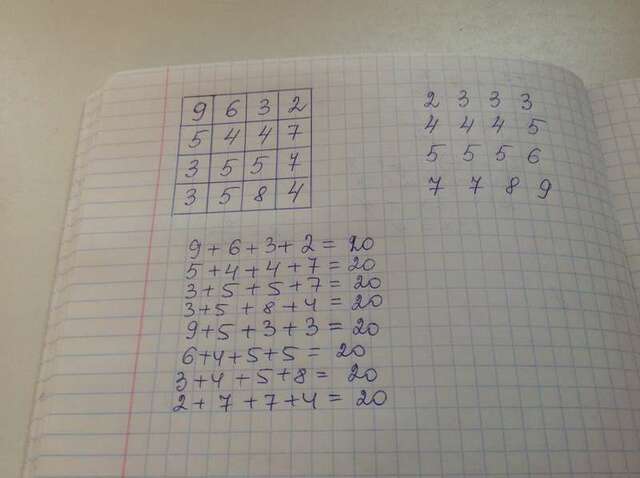 9 6 3 2
5 4 4 7
3 5 5 7
3 5 8 4
2 3 3 3
4 4 4 5
5 5 5 6
7 7 8 9
9+6+3+2=20
5+4+4+7=20
3+5+5+7=20
3+5+8+4=20
9+5+3+3=20
6+4+5+5=20
3+4+5+8=20
2+7+7+4=20